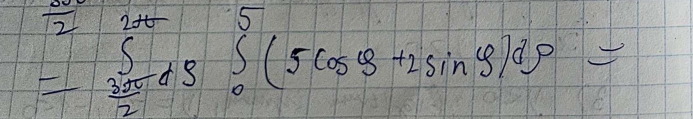 = ∫_{3π/2}^{2π} dφ ∫_0^5 (5 cos φ + 2 sin φ) dρ =